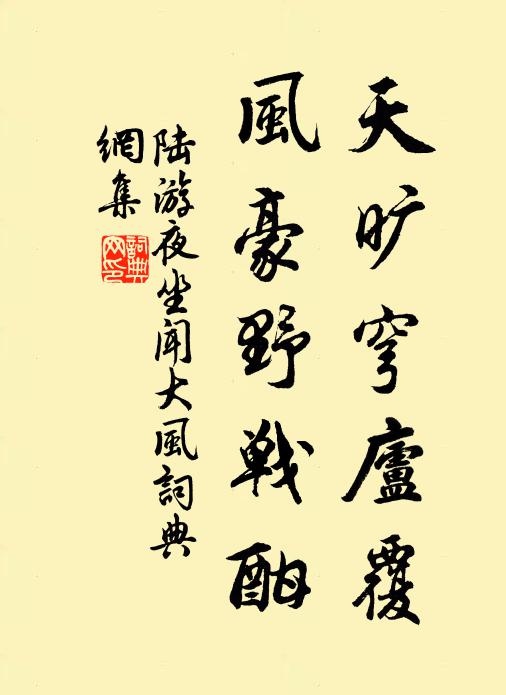 天旷穹廬覆
風豪野戰酣
陆游夜坐闻大風詞典
網集
詞典
网印